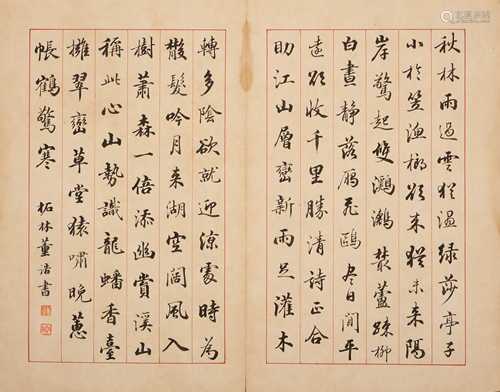 秋林雨過雲猶溼綠莎亭子
小於笠漁榔欲來猶未來隔
岸驚起雙鸂鶒叢蘆疎柳
白晝靜落雁飛鷗盡日閒平
遠欲收千里勝清詩正合
助江山層巒新雨足灌木
轉多陰欲就迎涼處時為
散髮吟月來湖空闊風入
樹蕭森一倍添幽賞溪山
稱此心山勢識龍蟠香臺
擁翠巒草堂猿嘯晚蕙
帳鶴驚寒
柘林董誥書